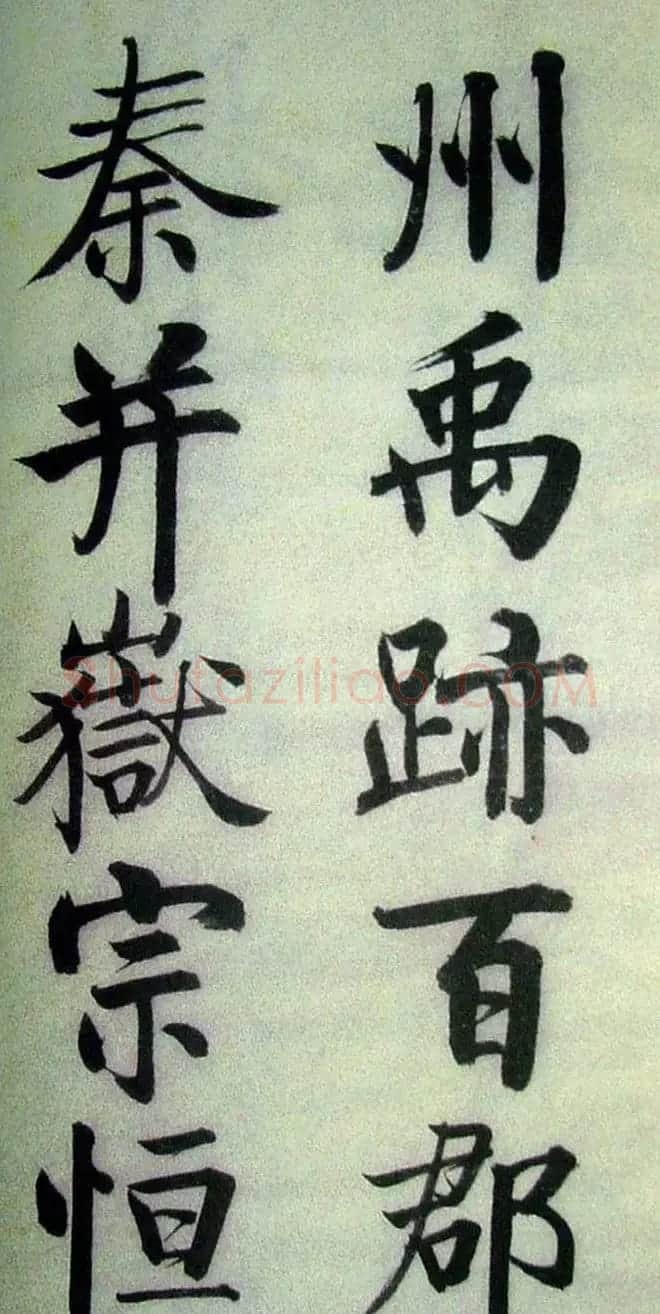 州禹跡百郡
秦并嶽宗恒
Shufaziliao.COM